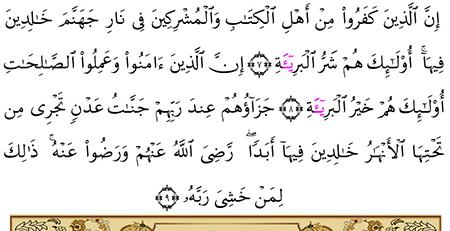 إِنَّ ٱلَّذِينَ كَفَرُوا۟ مِنْ أَهْلِ ٱلْكِتَـٰبِ وَٱلْمُشْرِكِينَ فِى نَارِ جَهَنَّمَ خَـٰلِدِينَ
فِيهَآ ۚ أُو۟لَـٰٓئِكَ هُمْ شَرُّ ٱلْبَرِيٓـَٔةِ ﴿٧﴾ إِنَّ ٱلَّذِينَ ءَامَنُوا۟ وَعَمِلُوا۟ ٱلصَّـٰلِحَـٰتِ
أُو۟لَـٰٓئِكَ هُمْ خَيْرُ ٱلْبَرِيٓـَٔةِ ﴿٨﴾ جَزَآؤُهُمْ عِندَ رَبِّهِمْ جَنَّـٰتُ عَدْنٍ تَجْرِى مِن
تَحْتِهَا ٱلْأَنْهَـٰرُ خَـٰلِدِينَ فِيهَآ أَبَدًا ۖ رَّضِىَ ٱللَّهُ عَنْهُمْ وَرَضُوا۟ عَنْهُ ۚ ذَٰلِكَ
لِمَنْ خَشِىَ رَبَّهُۥ ﴿٩﴾